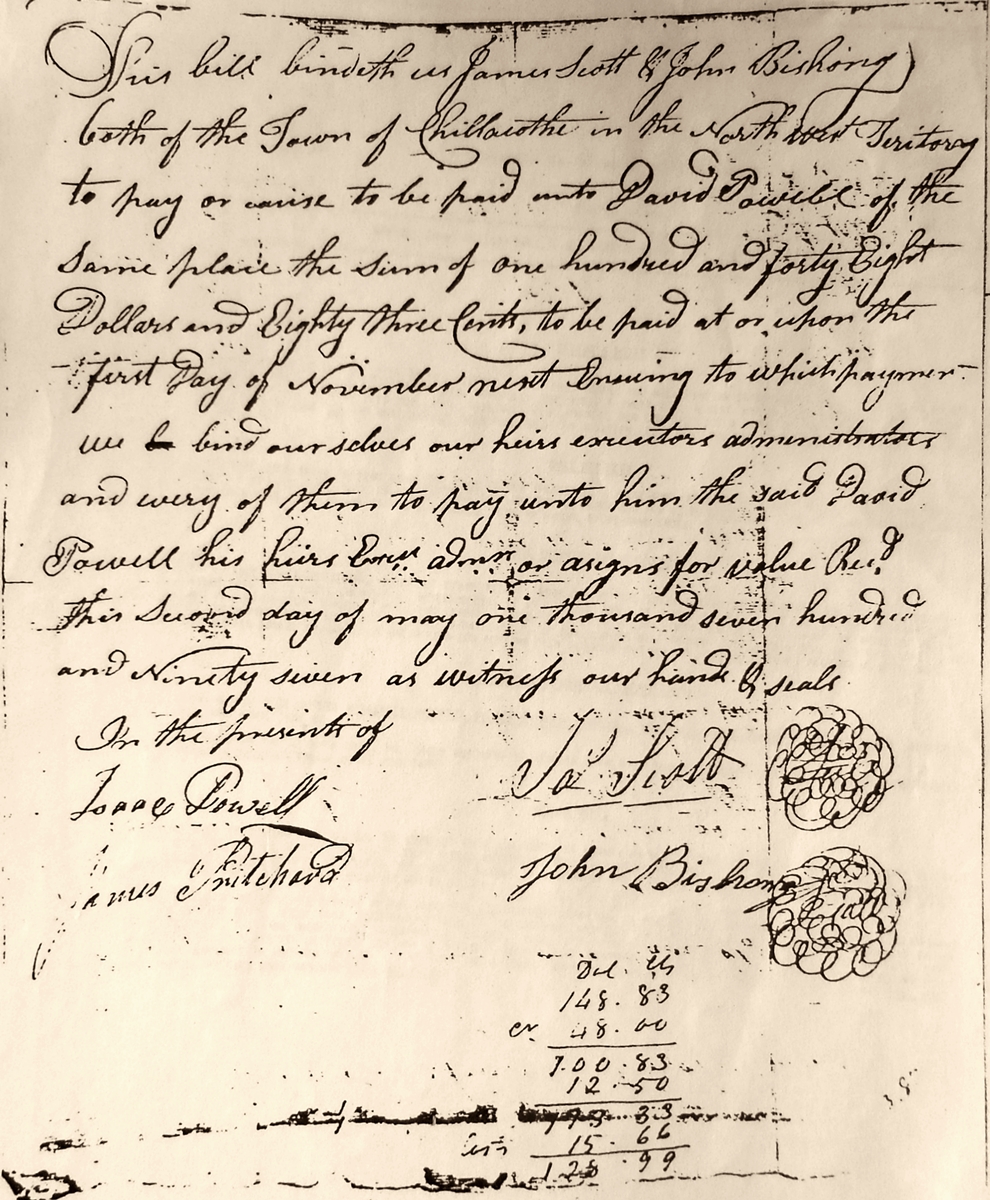 This bill bindeth us James Scott & John Bishong
both of the Town of Chillacothe in the North west Teritory
to pay or cause to be paid unto David Powell of the
same place the sum of one hundred and forty Eight
Dollars and Eighty three Cents, to be paid at or upon the
first Day of November next Ensuing to which payment
we b bind ourselves our heirs executors administrators
and every of them to pay unto him the said David
Powell his heirs Exers. admrs or asigns for value Recd.
this Second day of may one thousand seven hundred
and Ninety seven as witness our hands & seals
In the presents of
Isaac Powell
Jas Scott
Seal
James Pritchard
John Bishong
Seal
Dol. Cts
148. 83
cr 48. 00
100. 83
12. 50
33
15. 66
128. 99